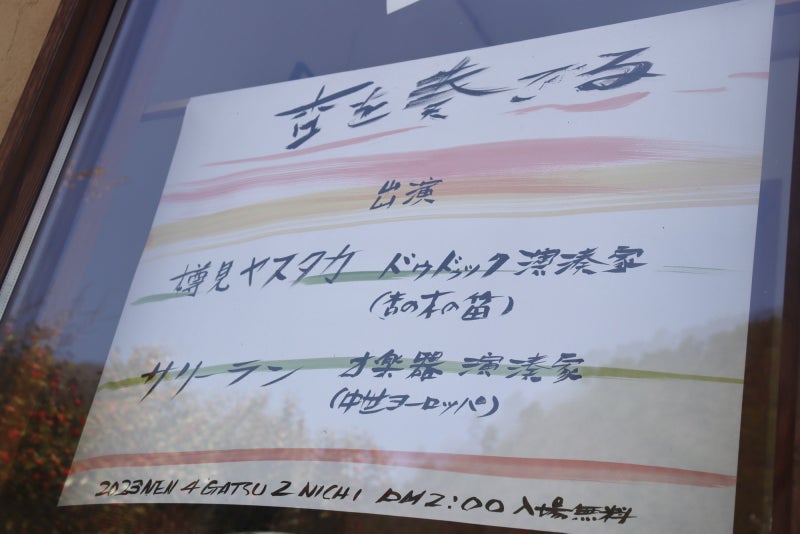 杏を奏でる
出演
樽見ヤスタカ ドゥドゥック演奏家
(杏の木の笛)
サリーラン 古楽器演奏家
(中世ヨーロッパ)
2023NEN 4GATSU 2NICHI PM2:00 入場無料